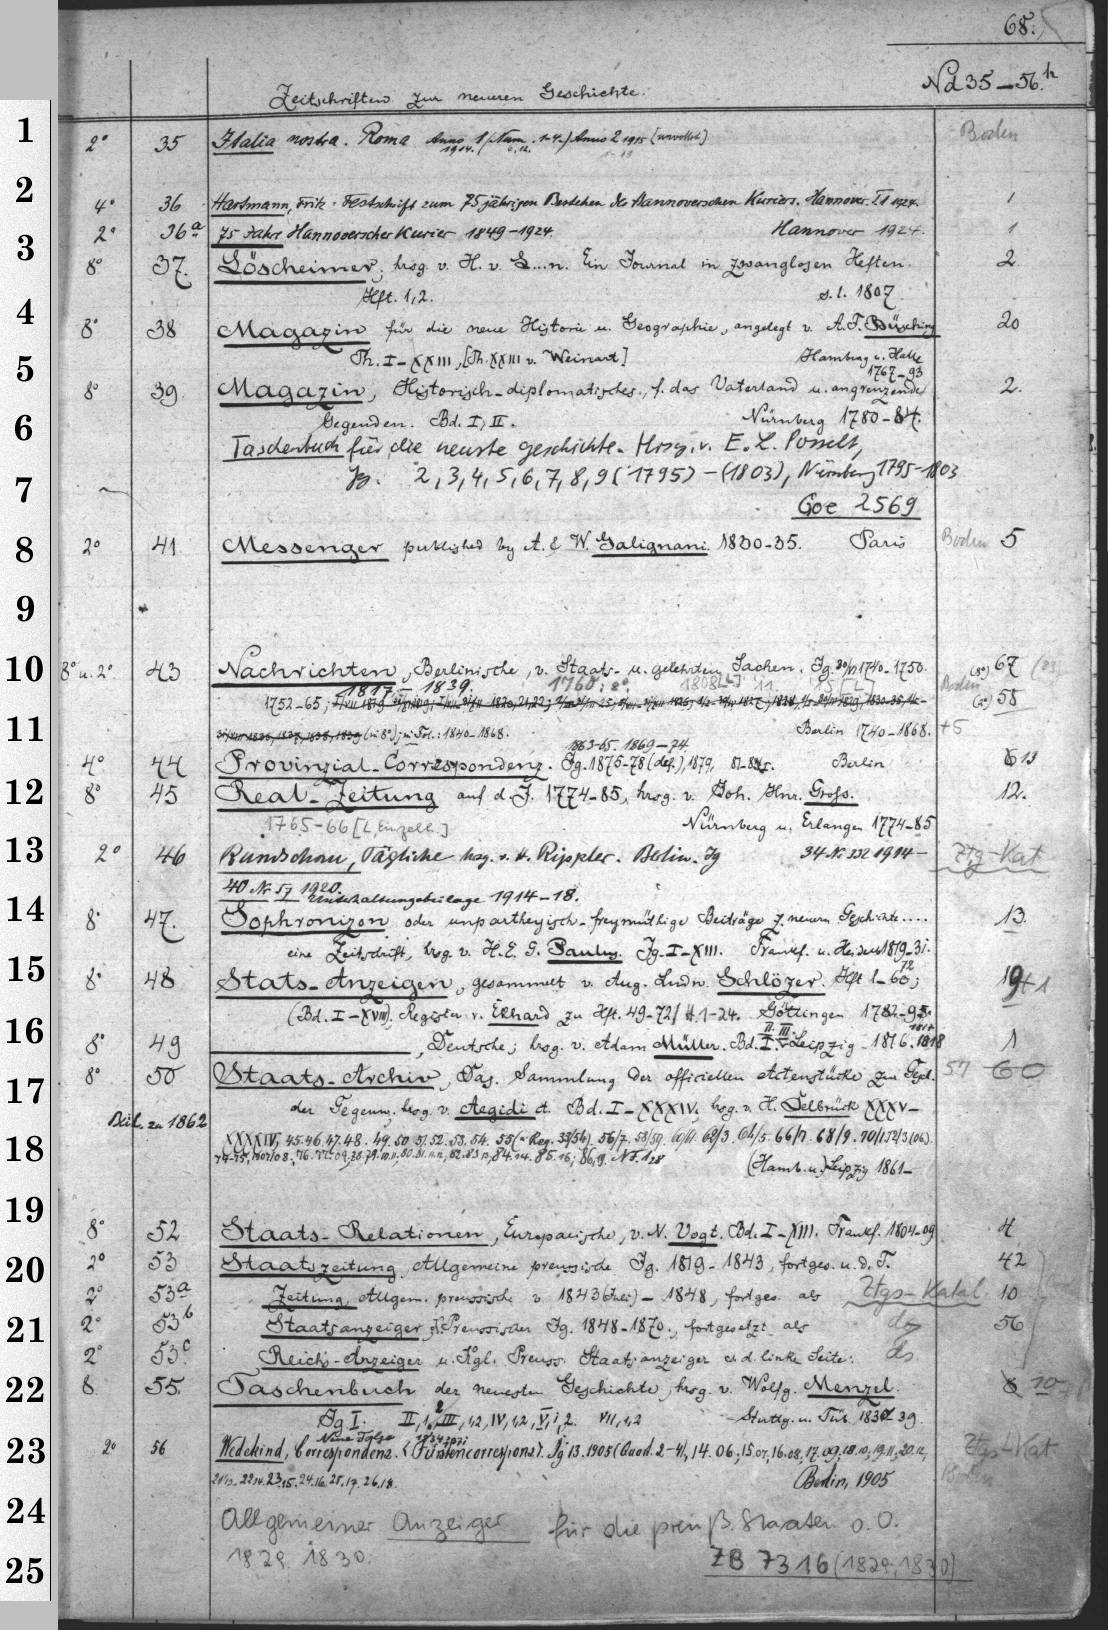 68.
Nd 35–56.h
Zeitschriften zur neueren Geschichte.
1 2° 35 Italia nostra. Roma Anno 1 (Num. 1-4.) Anno 2 1915 (unvollst.) Boden
1914.
2 4° 36 Hartmann, Fritz. Festschrift zum 75 jährigen Bestehen des Hannoverschen Kuriers. Hannover 1924. 1
2° 36a 75 Jahre Hannoverscher Kurier 1849–1924. Hannover 1924. 1
3 8° 37. Löscheimer, hrsg. v. H. v. L...n. Ein Journal in zwanglosen Heften. 2.
Hft. 1,2. s.l. 1807
4 8° 38 Magazin für die neue Historie u. Geographie, angelegt v. A. F. Büsching 20
Th. I–XXIII, [Th. XXIII v. Weinart] Hamburg u. Halle
5 1767–93
8° 39 Magazin, Historisch-diplomatisches, f. das Vaterland u. angrenzende 2.
6 Gegenden. Bd. I, II. Nürnberg 1780–84.
Taschenbuch für die neuste geschichte. Hrsg. v. E. L. Posselt,
7 Jg. 2,3,4,5,6,7,8,9 (1795) – (1803), Nürnberg 1795–1803
Goe 2569
8 2° 41 Messenger published by A. & W. Galignani. 1830-35. Paris Boden 5
9
10 8° u. 2° 43 Nachrichten, Berlinische, v. Staats- u. gelehrten Sachen. Jg. 1740–1750. (8°) 67
1817 1839. 1760; 8°. 1808 [L] 11. Boden
1752–65; (2°) 58
11 (in 8°); in Fol.: 1840–1868. Berlin 1740–1868. +5
1863-65. 1869–74.
4° 44 Provinzial-Correspondenz. Jg. 1875–78 (def.), 1879, 81–84. Berlin 13
12 8° 45 Real-Zeitung auf d. J. 1774–85, hrsg. v. Joh. Hnr. Gross. 12.
1765–66 [L, Einzelh.] Nürnberg u. Erlangen 1774–85
13 2° 46 Rundschau, Tägliche hrsg. v. H. Rippler. Berlin. Jg 34 Nr. 332 1914– Ztg-Kat
40 Nr 57 1920. Unterhaltungsbeilage 1914–18.
14 8° 47. Sophronizon oder unpartheyisch-freymüthige Beiträge z. neuern Geschichte.... 13.
eine Zeitschrift, hrsg. v. H. E. G. Paulus. Jg. I–XIII. Frankf. u. Heidelb 1819–31.
15 8° 48 Stats-Anzeigen, gesammelt v. Aug. Ludw. Schlözer. Hft 1–72; 19 +1
(Bd. I–XVIII); Register v. Ekhard zu Hft. 49–72/ H. 1–24. Göttingen 1782–95.
16 8° 49 , Deutsche; hrsg. v. Adam Müller. Bd. I. II. III. Leipzig 1816. 1817 1818 1
17 8° 50 Staats-Archiv, Das. Sammlung der officiellen Actenstücke zur Gesch. 57 60
der Gegenw., hrsg. v. Aegidi et. Bd. I–XXXIV, hrsg. v. H. Delbrück XXXV–
Beil. zu 1862
18 XXXXIV, 45.46.47.48. 49. 50 51. 52. 53. 54. 55 (u. Reg. 33/54). 56/7. 58/59. 60/61. 62/3. 64/5. 66/7. 68/9. 70/1. 72/3 (06).
(Hamb. u.) Leipzig 1861–
19 8° 52 Staats-Relationen, Europäische, v. N. Vogt. Bd. I–XIII. Frankf. 1804–09 4
20 2° 53 Staatszeitung, Allgemeine preussische Jg. 1819–1843, fortges. u. d. T. 42
2° 53a Zeitung, Allgem. preussische v. 1843 (Juli) – 1848, fortges. als Ztgs-Katal. 10
21 2° 53b Staatsanzeiger, K. Preussischer Jg. 1848–1870., fortgesetzt als do 56
2° 53c. Reichs-Anzeiger u. Kgl. Preuss. Staatsanzeiger s. d. linke Seite. do
22 8 55. Taschenbuch der neuesten Geschichte, hrsg. v. Wolfg. Menzel. 10
Jg I. II, 1, 2 III, 1,2, IV, 1,2, V, 1, 2. VII, 1,2 Stuttg. u. Tüb. 1830–39.
Neue Folge
23 2° 56 Wedekind, Correspondenz. (Fürstencorrespond.). Jg 13. 1905 (Quart. 2–4), 14. 06, 15.07, 16.08, 17.09, 18.10, 19.11, 20.12, Ztgs-Kat
21 13. 22 14. 23.15. 24.16. 25.17. 26.18. Berlin, 1905 Boden
24 Allgemeiner Anzeiger für die preuß. Staaten o. O.
25 1829. 1830. ZB 7316 (1829; 1830)